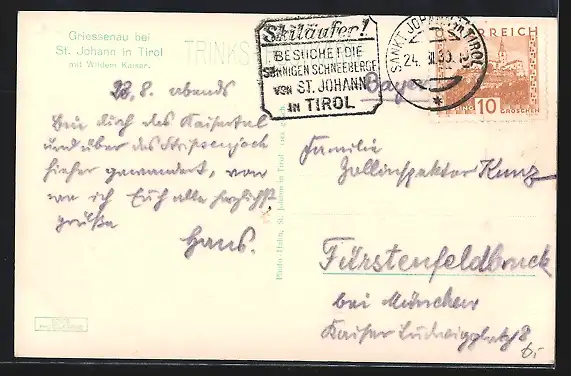 Griessenau bei
St. Johann in Tirol
mit Wildem Kaiser.
TRINKS
Skiläufer!
BESUCHET DIE
SONNIGEN SCHNEEBERGE
VON ST. JOHANN
IN TIROL
SANKT JOHANN IN TIROL
24.
ÖSTERREICH
10
GROSCHEN
23.8. abends
Bin durch das Kaisertal
und über das Stripsenjoch
hieher gewandert, von
wo ich Euch alle herzlichst
grüße
Hans.
Bayern
Familie
Zollinspektor Kunz
Fürstenfeldbruck
bei München
Kaiser Ludwigplatz 8
6,-
St. Johann in Tirol